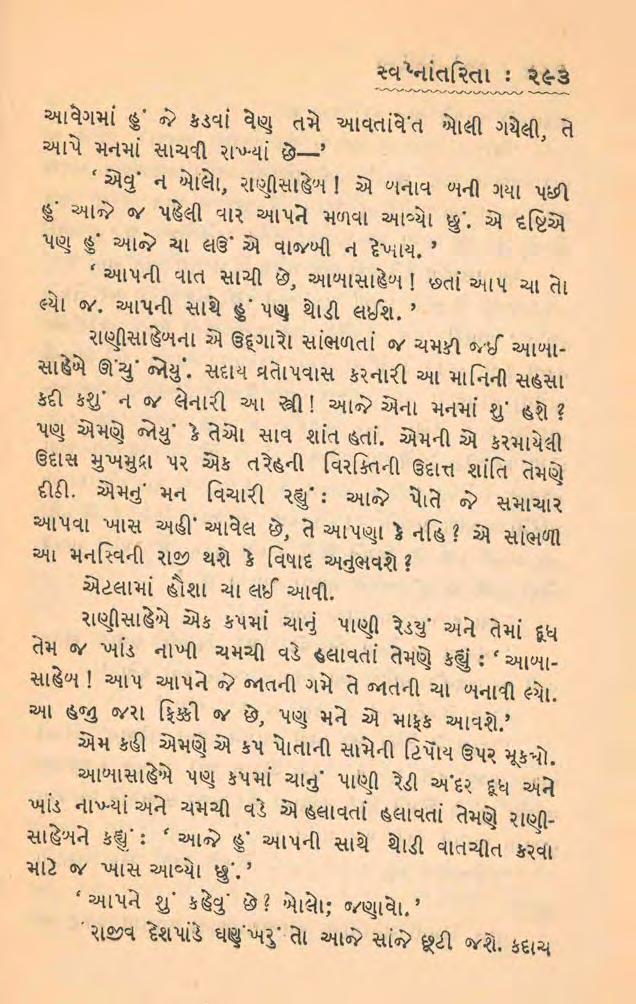 સ્વપ્નાંતરિતા : ૨૯૩
આવેગમાં હું જે કડવાં વેણ તમે આવતાંવેંત બોલી ગયેલી, તે
આપે મનમાં સાચવી રાખ્યાં છે—’
‘એવું ન બોલો, રાણીસાહેબ ! એ બનાવ બની ગયા પછી
હું આજે જ પહેલી વાર આપને મળવા આવ્યો છું. એ દૃષ્ટિએ
પણ હું આજે ચા લઉં એ વાજબી ન દેખાય. ’
‘આપની વાત સાચી છે, આબાસાહેબ ! છતાં આપ ચા તો
લ્યો જ. આપની સાથે હું પણ થોડી લઈશ. ’
રાણીસાહેબના એ ઉદ્‌ગારો સાંભળતાં જ ચમકી જઈ આબા-
સાહેબે ઊંચું જોયું. સદાય વ્રતોપવાસ કરનારી આ માનિની સહસા
કદી કશું ન જ લેનારી આ સ્ત્રી ! આજે એના મનમાં શું હશે ?
પણ એમણે જોયું કે તેઓ સાવ શાંત હતાં. એમની એ કરમાયેલી
ઉદાસ મુખમુદ્રા પર એક તરેહની વિરક્તિની ઉદાત્ત શાંતિ તેમણે
દીઠી. એમનું મન વિચારી રહ્યું : આજે પોતે જે સમાચાર
આપવા ખાસ અહીં આવેલ છે, તે આપણા કે નહિ ? એ સાંભળી
આ મનસ્વિની રાજી થશે કે વિષાદ અનુભવશે ?
એટલામાં હૌશા ચા લઈ આવી.
રાણીસાહેબે એક કપમાં ચાનું પાણી રેડ્યું અને તેમાં દૂધ
તેમ જ ખાંડ નાખી ચમચી વડે હલાવતાં તેમણે કહ્યું : ‘આબા-
સાહેબ ! આપ આપને જે જાતની ગમે તે જાતની ચા બનાવી લ્યો.
આ હજી જરા ફિક્કી જ છે, પણ મને એ માફક આવશે.’
એમ કહી એમણે એ કપ પોતાની સામેની ટિપોય ઉપર મૂક્યો.
આબાસાહેબે પણ કપમાં ચાનું પાણી રેડી અંદર દૂધ અને
ખાંડ નાખ્યાં અને ચમચી વડે એ હલાવતાં હલાવતાં તેમણે રાણી-
સાહેબને કહ્યું : ‘ આજે હું આપની સાથે થોડી વાતચીત કરવા
માટે જ ખાસ આવ્યો છું.’
‘આપને શું કહેવું છે ? બોલો; જણાવો.’
‘રાજીવ દેશપાંડે ઘણુંખરું તો આજે સાંજે છૂટી જશે. કદાચ